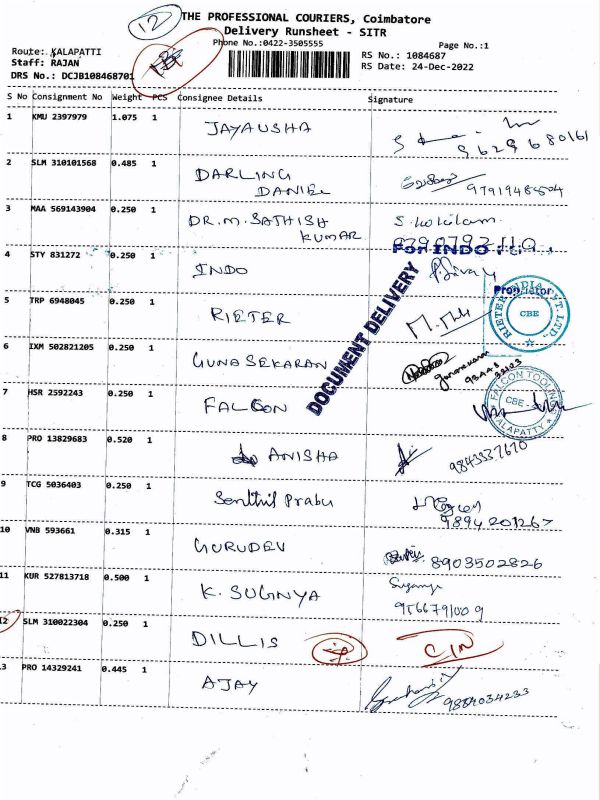 12
THE PROFESSIONAL COURIERS, Coimbatore
Delivery Runsheet - SITR
Phone No.:0422-3505555
Page No.:1
Route: KALAPATTI
Staff: RAJAN
DRS No.: DCJB108468701
RS No.: 1084687
RS Date: 24-Dec-2022
S No Consignment No Weight PCS Consignee Details Signature
1 KMU 2397979 1.075 1 JAYAUSHA
9629680161
2 SLM 310101568 0.485 1 DARLING
DANIEL
3 MAA 569143904 0.250 1 DR.M.SATHISH
KUMAR
S.kokilam
FOR INDO
4 STY 831272 0.250 1 INDO
Proprietor
5 TRP 6948045 0.250 1 RIETER
RIETER INDIA PVT.LTD.,
CBE
DOCUMENT DELIVERY
6 IXM 502821205 0.250 1 GUNASEKARAN
gunasekaran
7 HSR 2592243 1 FALCON
FALCON TOOLINGS
CBE
KALAPATTY
8 PRO 13829683 0.520 1 ANISHA
9843337670
9 TCG 5036403 0.250 1 Senthil Prabu
9894201267
10 VNB 593661 0.315 1 GURUDEV
8903502826
11 KUR 527813718 0.500 1 K. SUGNYA
Suganya
9566791009
12 SLM 310022304 0.250 1 DILLIS CIN
13 PRO 14329241 0.445 1 AJAY
9884034233